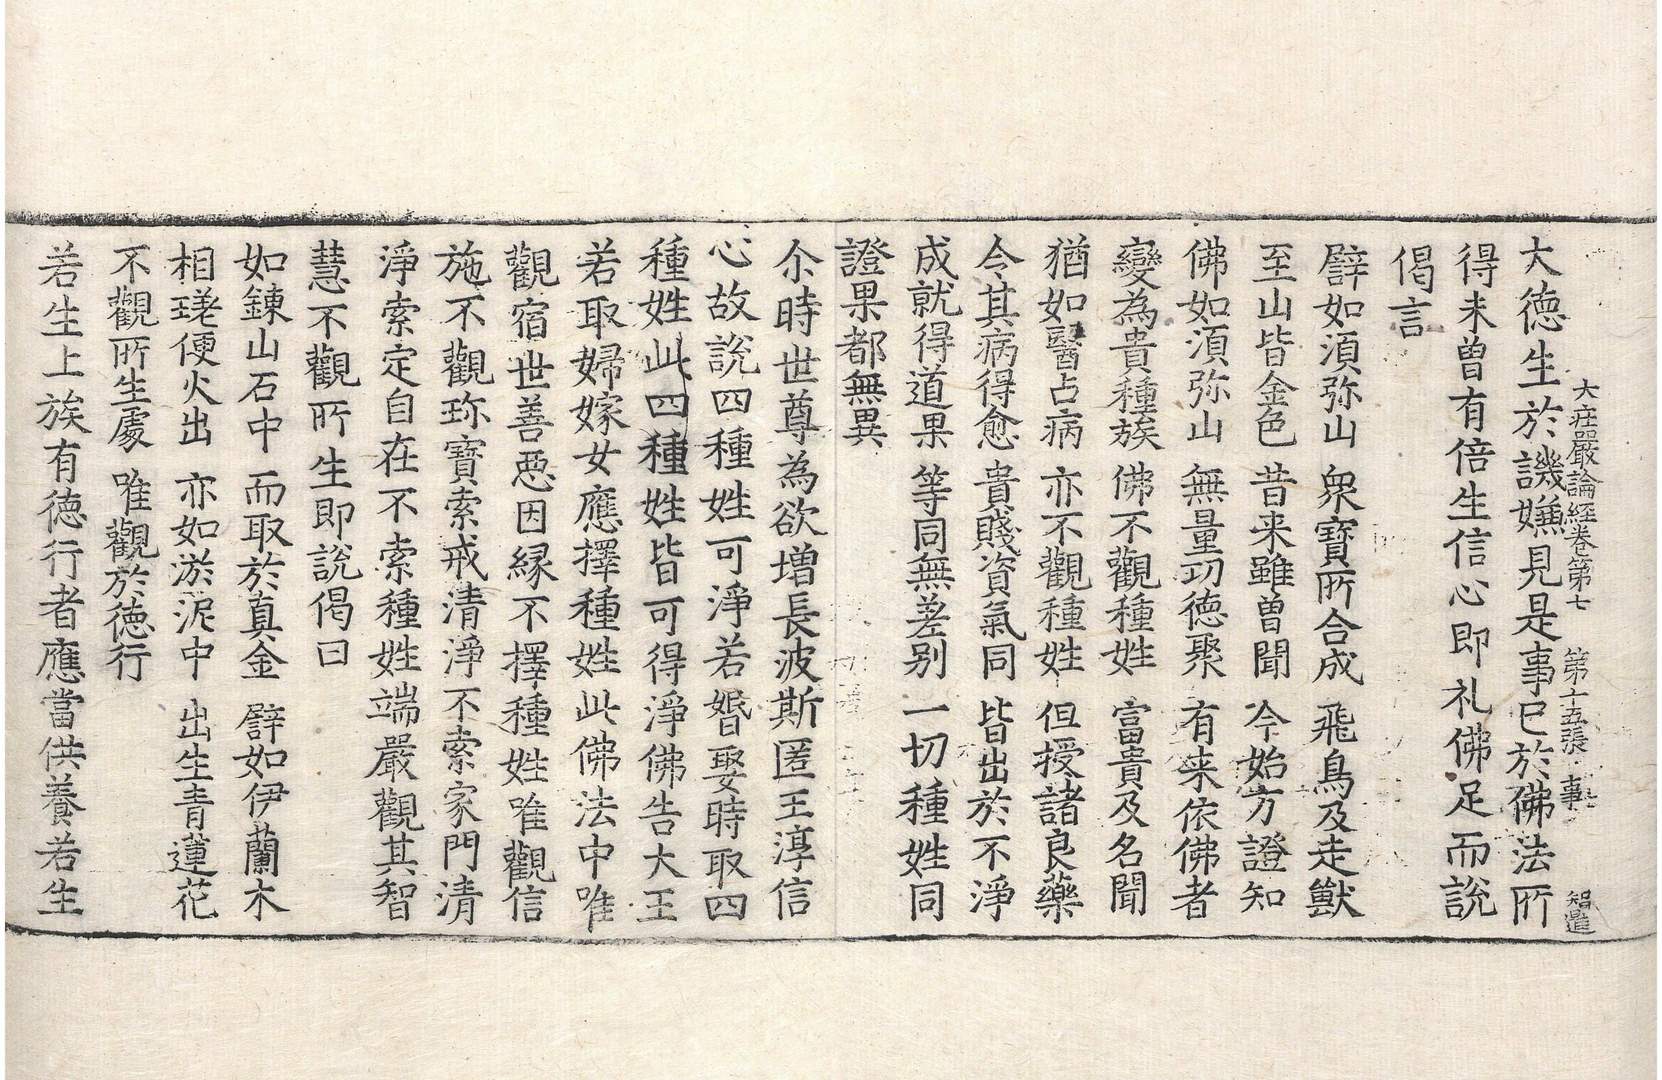 大庄嚴論經卷第七 第十五張 事 智遣
大德生於譏嫌見是事已於佛法所
得未曾有倍生信心即礼佛足而說
偈言
譬如湏弥山 衆寶所合成 飛鳥及走獸
至山皆金色 昔来雖曽聞 今始方證知
佛如湏弥山 無量功德聚 有来依佛者
變為貴種族 佛不觀種姓 富貴及名聞
猶如醫占病 亦不觀種姓 但授諸良藥
令其病得愈 貴賤資氣同 皆出於不淨
成就得道果 等同無差别 一切種姓同
證果都無異
尒時世尊為欲增長波斯匿王淳信
心故說四種姓可淨若婚娶時取四
種姓此四種姓皆可得淨佛告大王
若取婦嫁女應擇種姓此佛法中唯
觀宿世善惡因緣不擇種姓唯觀信
施不觀珎寶索戒清淨不索家門清
淨索定自在不索種姓端嚴觀其智
慧不觀所生即說偈曰
如鍊山石中 而取於真金 譬如伊蘭木
相瑳便火出 亦如淤泥中 出生青蓮花
不觀所生處 唯觀於德行
若生上族有德行者應當供養若生